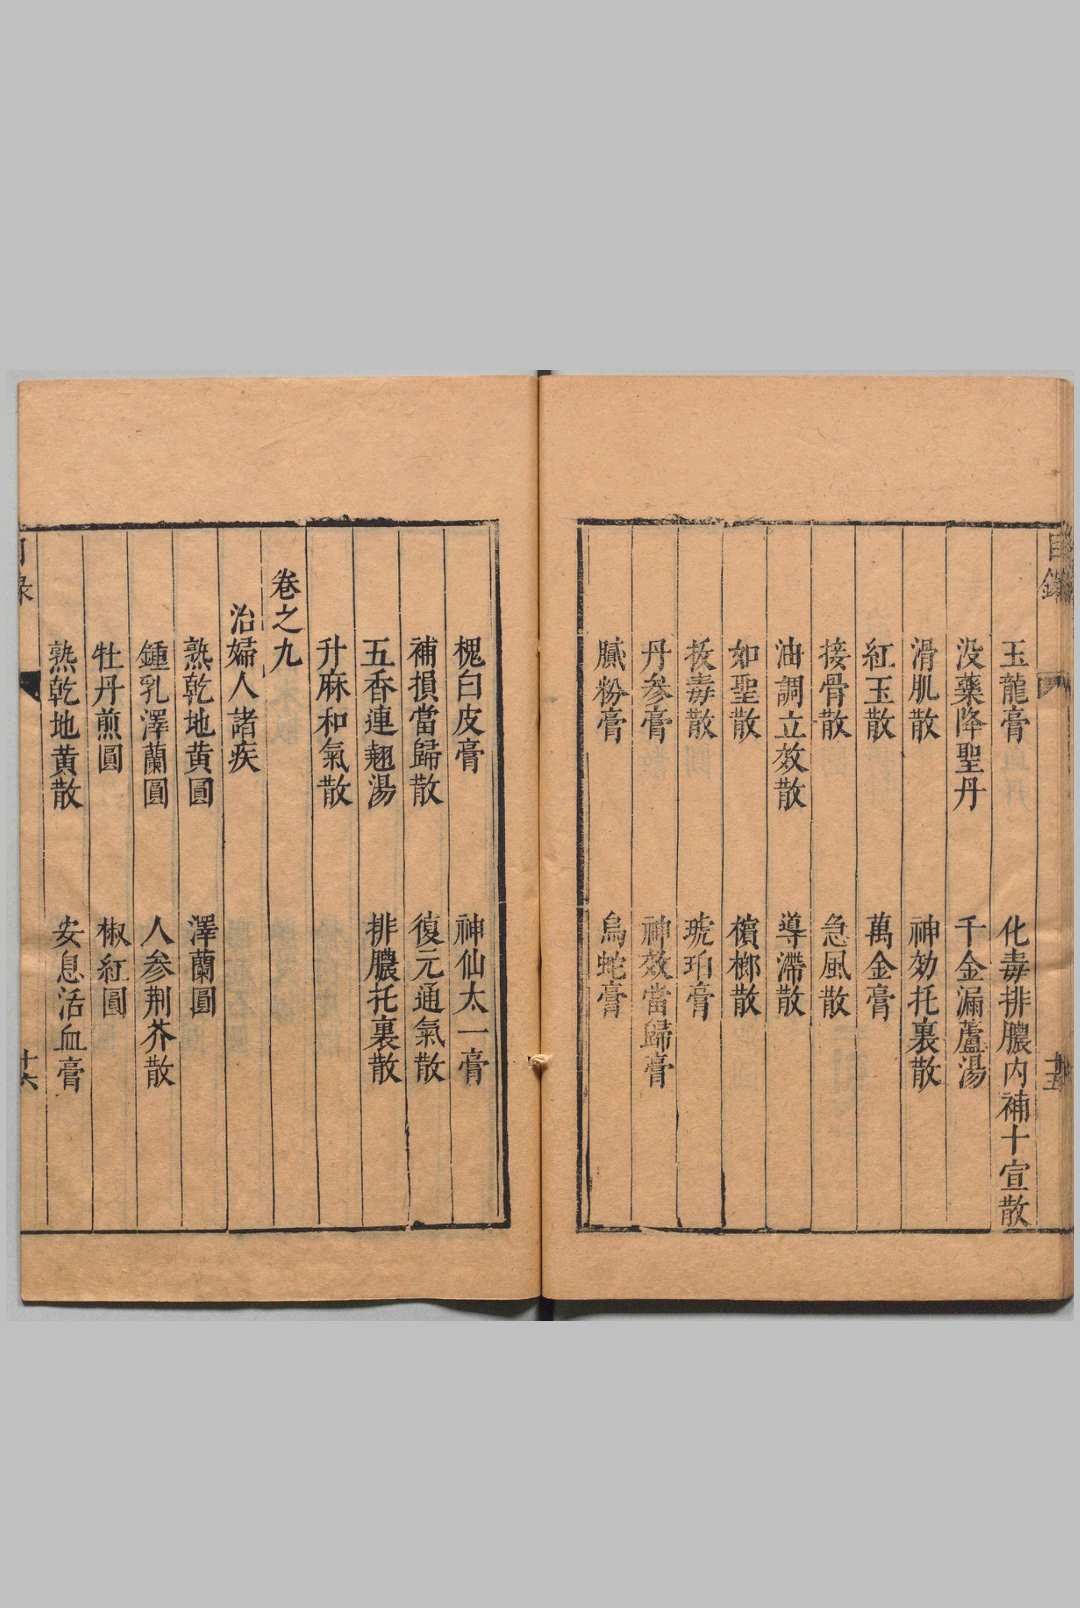 目錄
十五
玉龍膏　化毒排膿内補十宣散
没藥降聖丹　千金漏蘆湯
滑肌散　神効托裏散
紅玉散　萬金膏
接骨散　急風散
油調立效散　導滯散
如聖散　檳榔散
拔毒散　琥珀膏
丹參膏　神效當歸膏
膩粉膏　烏蛇膏
槐白皮膏　神仙太一膏
補損當歸散　復元通氣散
五香連翹湯　排膿托裏散
升麻和氣散
卷之九
治婦人諸疾
熟乾地黄圓　澤蘭圓
鍾乳澤蘭圓　人參荆芥散
牡丹煎圓　椒紅圓
熟乾地黄散　安息活血膏
目録
十六